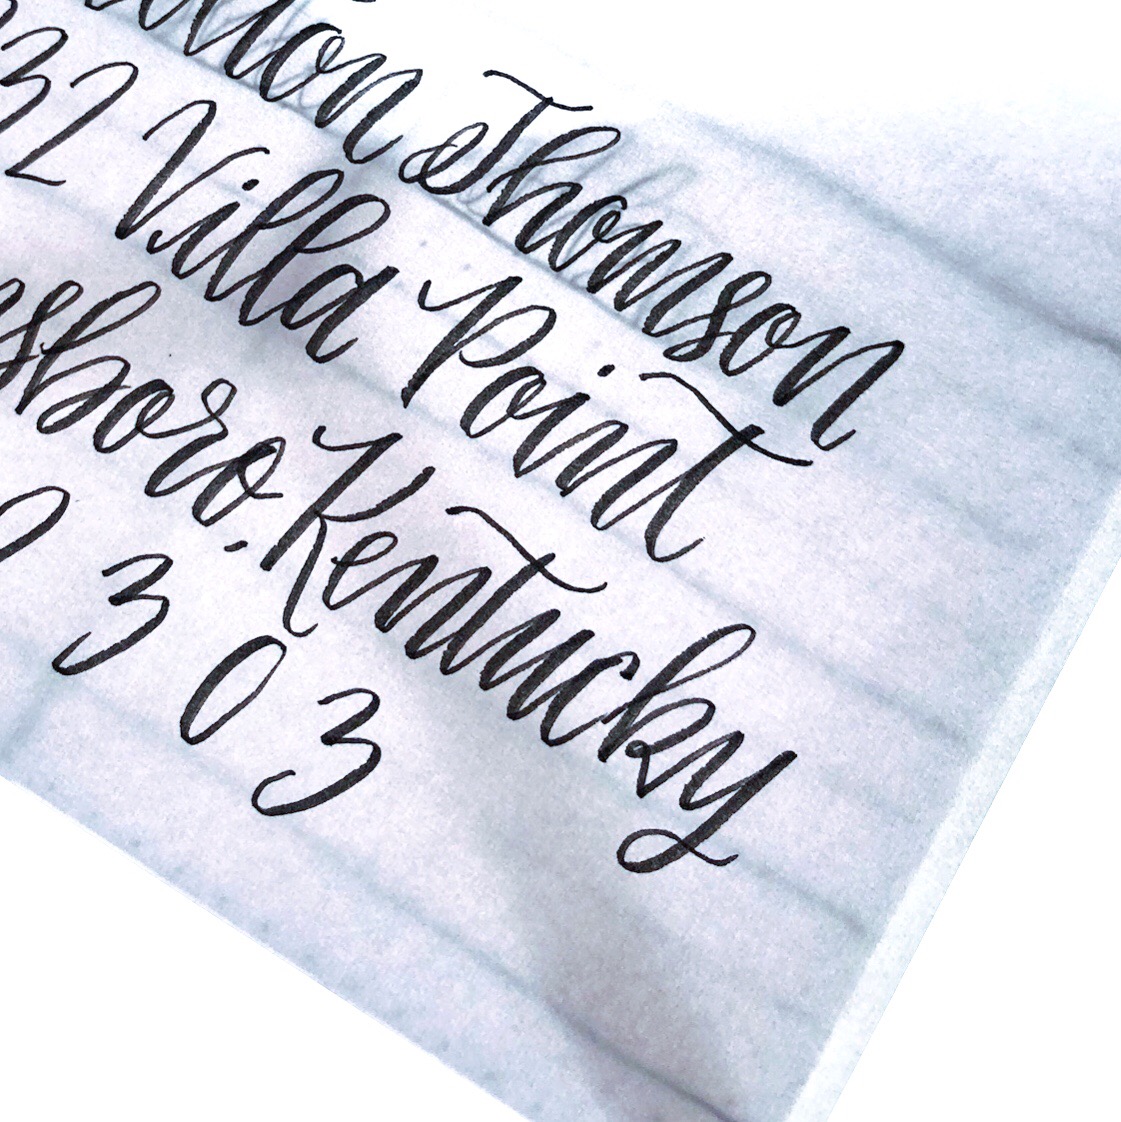 Thomson
32 Villa Point
sboro, Kentucky
303